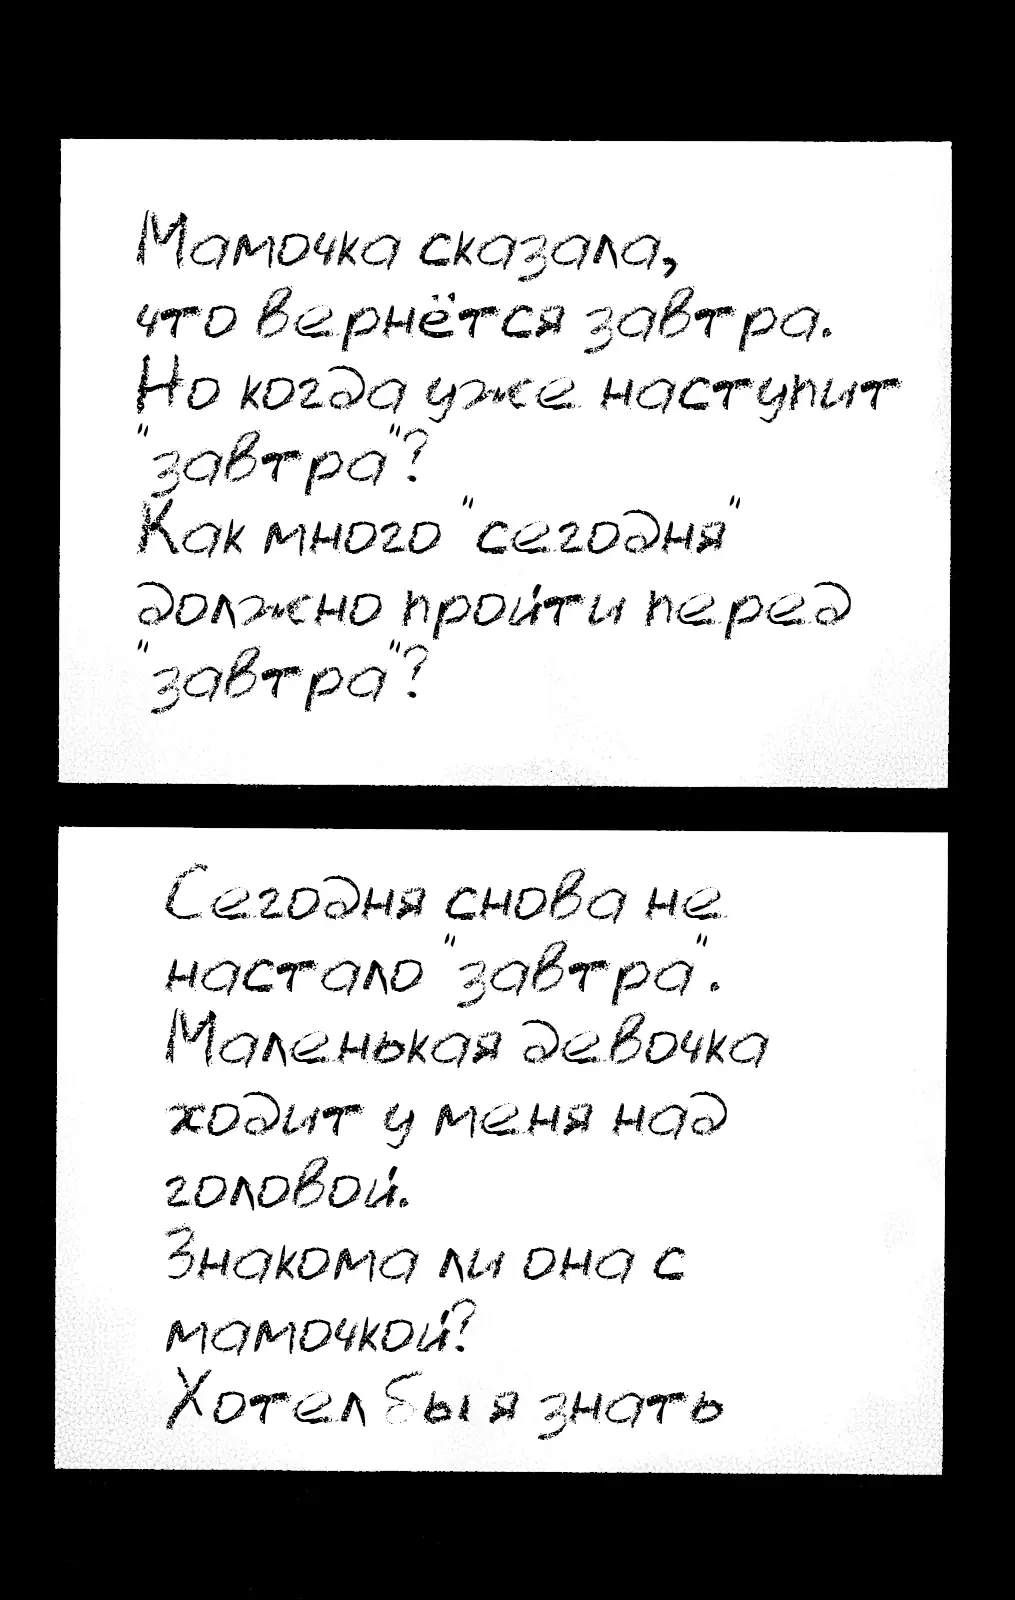 Мамочка сказала,
что вернётся завтра.
Но когда уже наступит
"завтра"?
Как много "сегодня"
должно пройти перед
"завтра"?
Сегодня снова не
настало "завтра".
Маленькая девочка
ходит у меня над
головой.
Знакома ли она с
мамочкой?
Хотел бы я знать